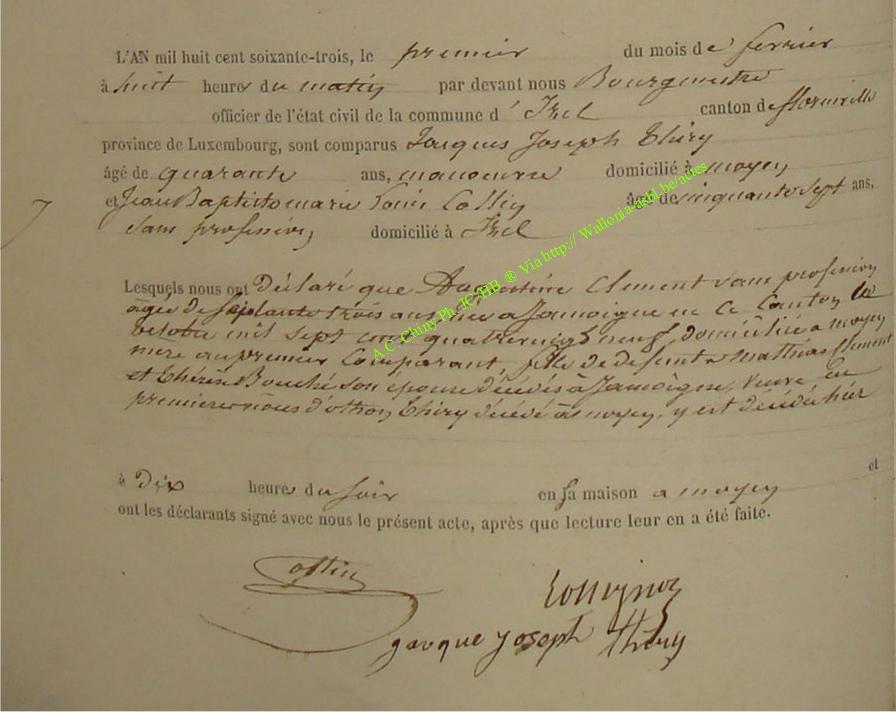 L'AN mil huit cent soixante-trois, le premier du mois de fevrier
à huit heures du matin par devant nous Bourgmestre
officier de l'état civil de la commune d'Izel canton de florenville
province de Luxembourg, sont comparus Jacques Joseph Thiry
âgé de quarante ans, manoeuvre domicilié à moyen
et Jean Baptiste marie Louis Collin âgé de cinquante sept ans,
sans profession domicilié à Izel
7
Lesquels nous ont déclaré que Clement sans profession
agée de soixante trois ans née a Jamoigne en ce Canton le
octobre mil sept cent quatrevingt neuf, domiciliée a moyen
mère au premier Comparant, fille de defunts Mathias Clement
et Thérèse Bouché son epouse décédés a Jamoigne, veuve en
premieres noces d'othon Thiry décédé à moyen, y est décédée hier
à Dix heures du soir en sa maison a moyen et
ont les déclarants signé avec nous le présent acte, après que lecture leur en a été faite.
Collin
Rossignon
jacque joseph thiry
A.C. Chiny Ph. JC/HB ® Via http:// Wallonia-asbl.be/actes